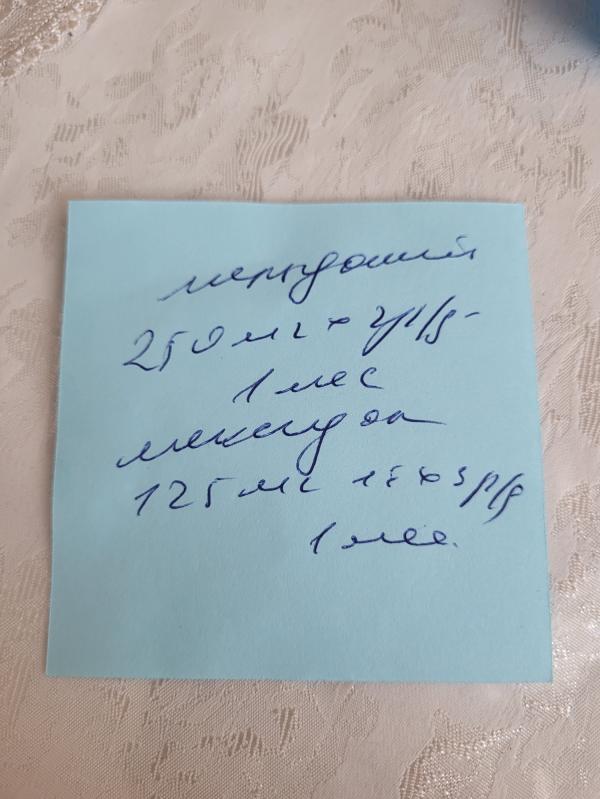 мельдоний
250 мг х 2р/д-
1 мес
мексидол
125 мг 1т х 3р/д
1 мес.